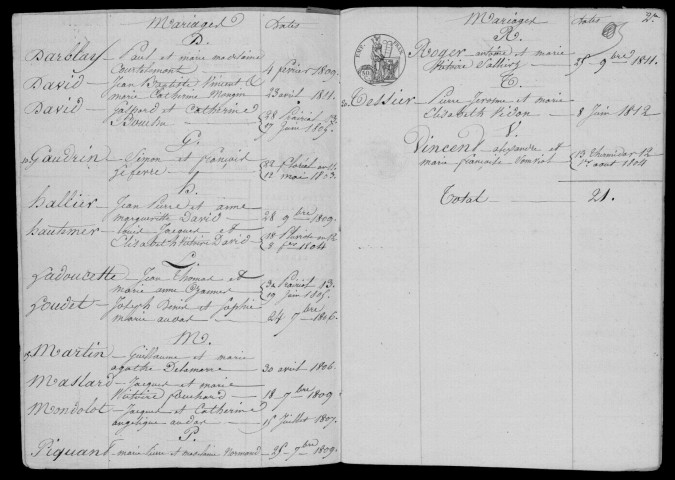 Mariages Dates
D.
Darblay Paul et marie madelaine
Courtelemont 4 février 1809.
David Jean Baptiste Vincent &
marie Catherine Mongin 23 avril 1811.
David Gaspard et Catherine
28 Prairial 13
17 Juin 1805.
G.
Gaudrin Simon et françoise
Lefevre 22 floréal an 11
12 mai 1803
h.
hallier Jean Pierre et anne
margueritte David 28 9bre 1809.
hautemer Louis Jacques et
Elisabeth Victoire David 18 an 12
1804
L.
Ladoucette Jean Thomas et
marie anne 30 Prairial 13.
19 Juin 1805.
Loudet Joseph Denis et Sophie
marie audar 24 7bre 1806.
M.
Martin Guillaume et marie
agathe Delamarre 30 avril 1806.
Maslard Jacques et marie
Victoire 18 7bre 1809
Mondolot Jacques et Catherine
angélique audar 15 Juillet 1807.
P.
Piquant marie Pierre et madelaine Normand 25 7bre 1809.
Mariages Dates
R.
Roger antoine et marie
Victoire 25 9bre 1811.
T.
Tessier Pierre Jerosme et marie
Elisabeth Vidon 8 Juin 1812
V.
Vincent alexandre et
marie françoise 13 Thermidor 12
1er août 1804
Total 21.